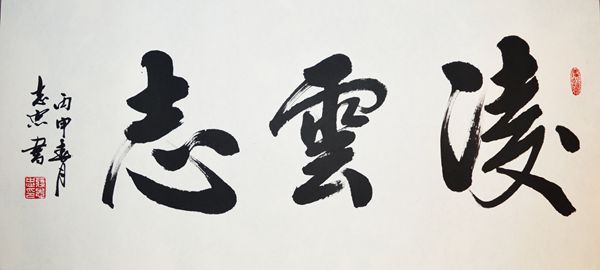 凌雲志
丙申春月
志忠書